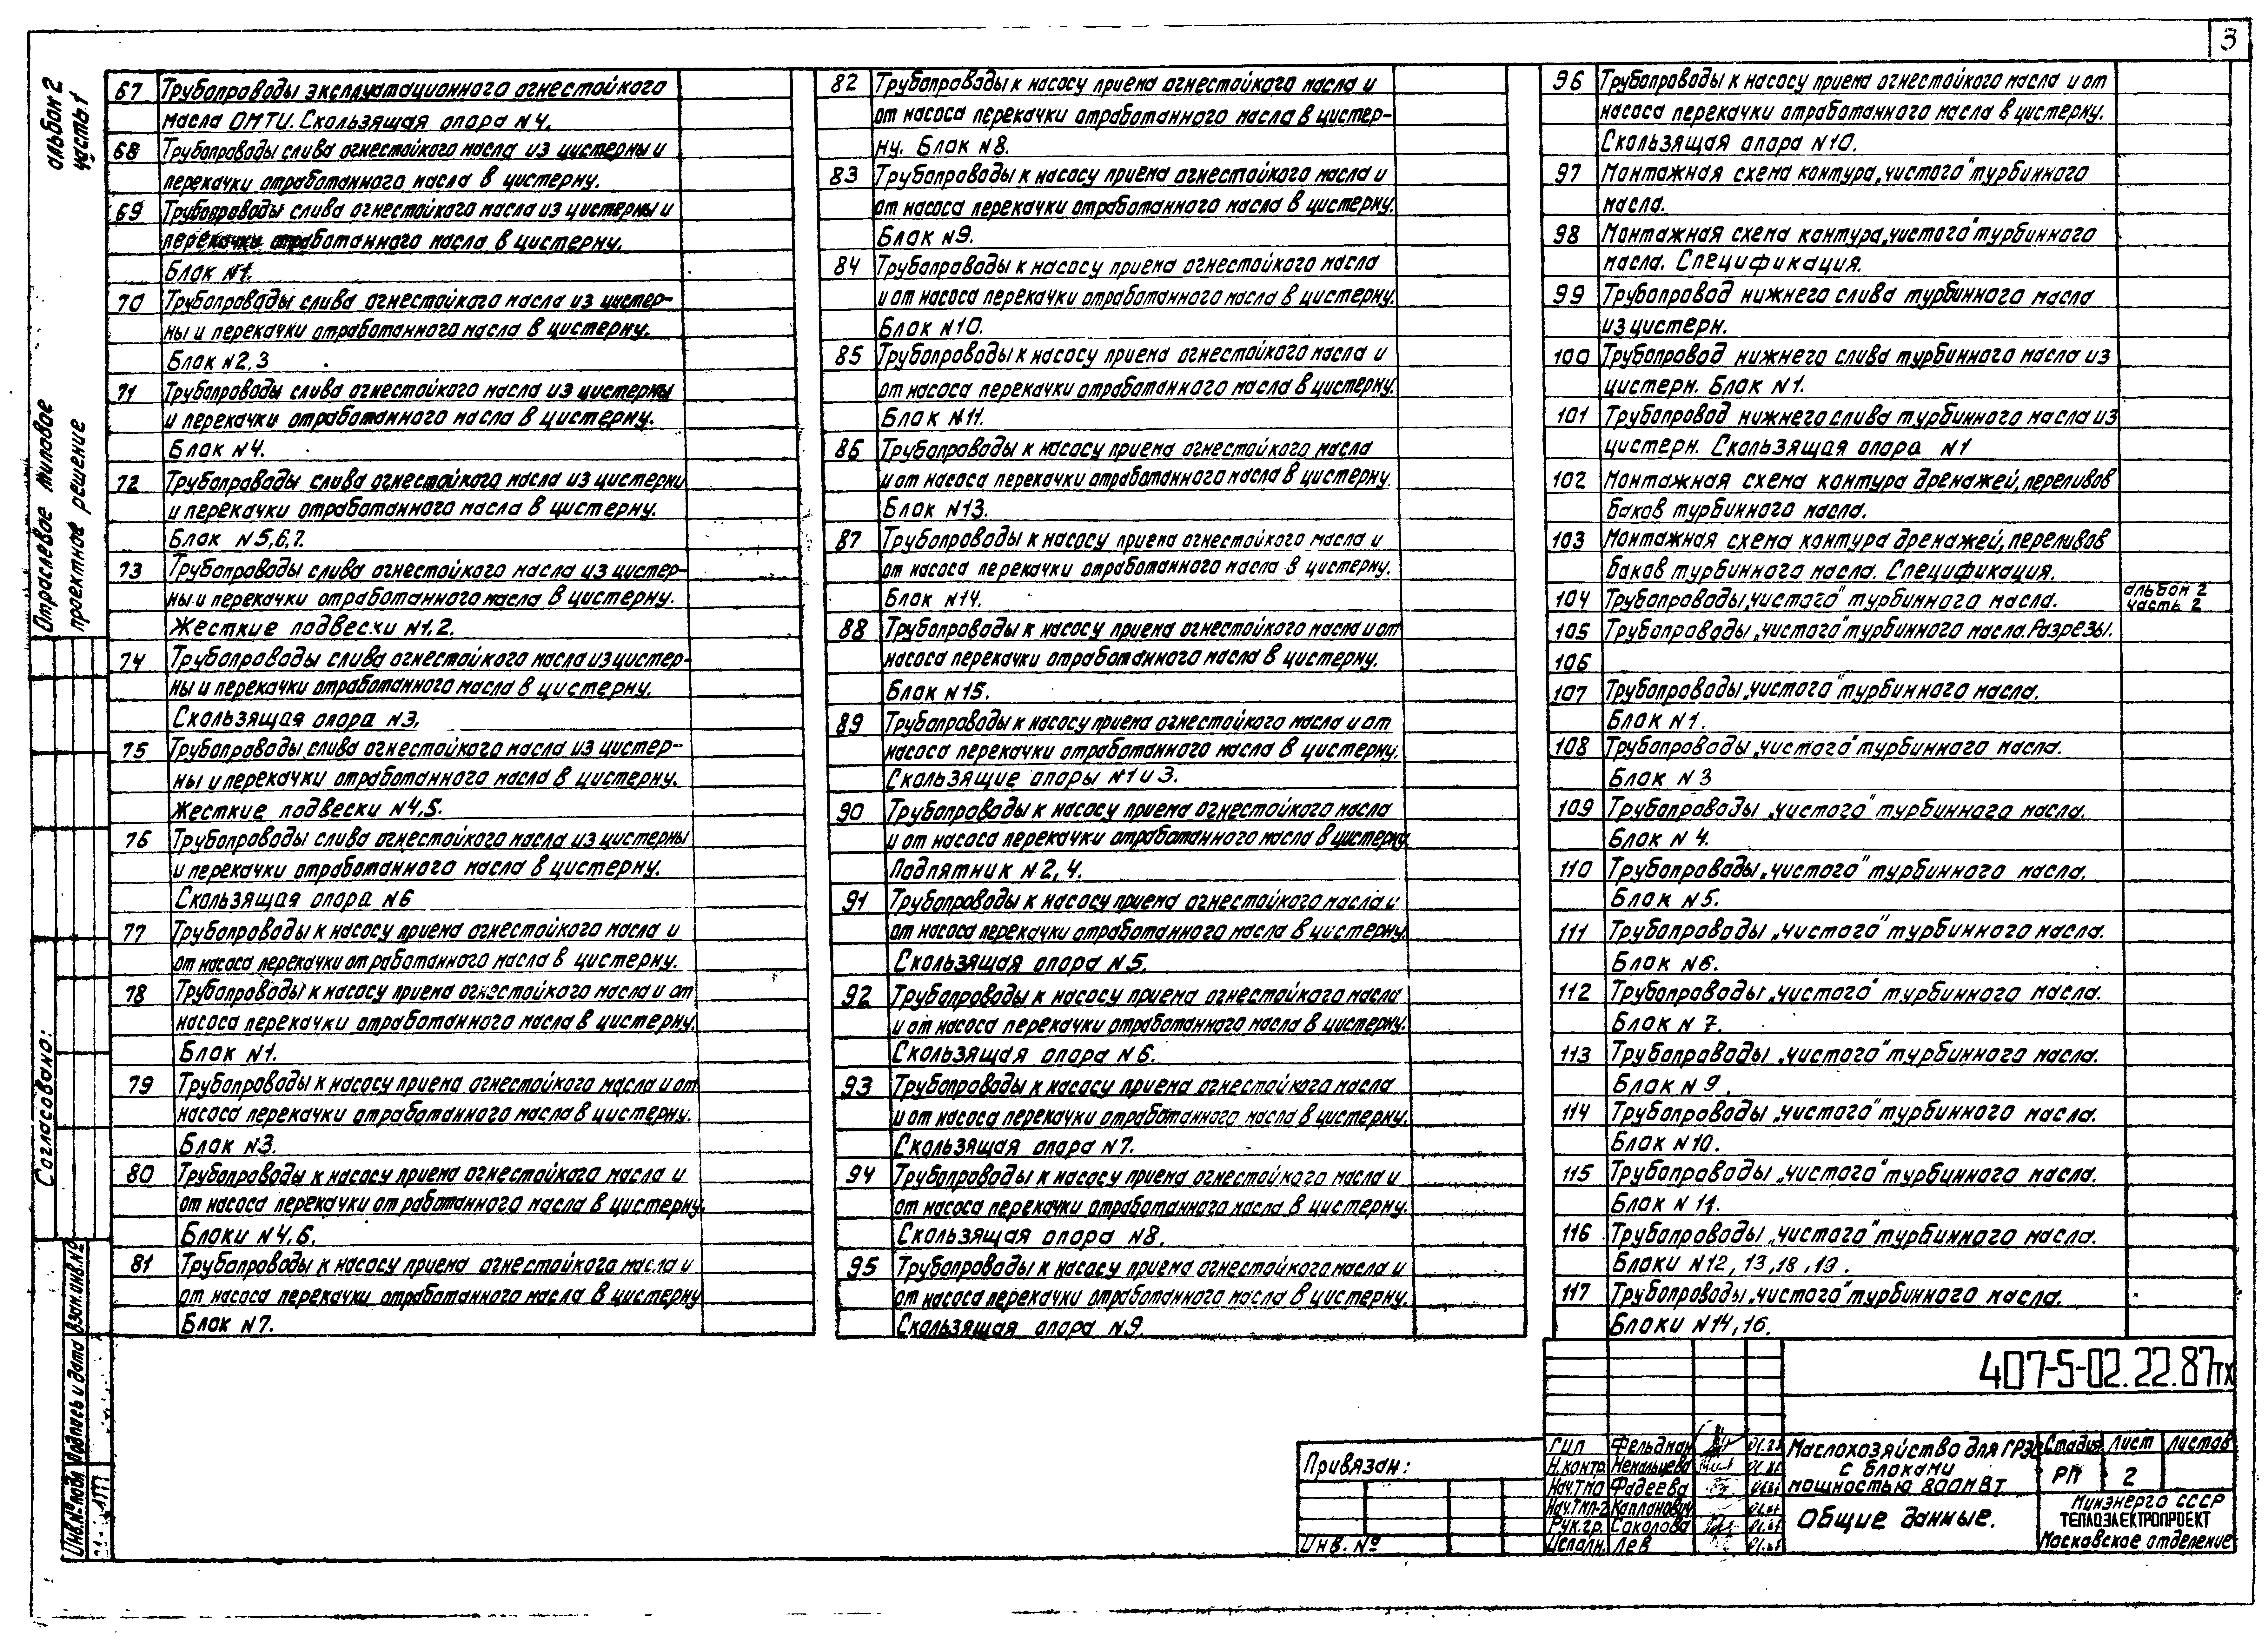 3
альбом 2
часть 1
Отраслевое типовое
проектное решение
Согласовано:
Взам.инв.№
Подпись и дата
Инв.№подл
67 Трубопроводы эксплуатационного огнестойкого
масла ОМТИ. Скользящая опора N4.
68 Трубопроводы слива огнестойкого масла из цистерны и
перекачки отработанного масла в цистерну.
69 Трубопроводы слива огнестойкого масла из цистерны и
перекачки отработанного масла в цистерну.
Блок N1.
70 Трубопроводы слива огнестойкого масла из цистер-
ны и перекачки отработанного масла в цистерну.
Блок N2,3
71 Трубопроводы слива огнестойкого масла из цистерны
и перекачки отработанного масла в цистерну.
Блок N4.
72 Трубопроводы слива огнестойкого масла из цистерны
и перекачки отработанного масла в цистерну.
Блок N5,6,7.
73 Трубопроводы слива огнестойкого масла из цистер-
ны и перекачки отработанного масла в цистерну.
Жесткие подвески N1,2.
74 Трубопроводы слива огнестойкого масла из цистер-
ны и перекачки отработанного масла в цистерну.
Скользящая опора N3.
75 Трубопроводы слива огнестойкого масла из цистер-
ны и перекачки отработанного масла в цистерну.
Жесткие подвески N4,5.
76 Трубопроводы слива огнестойкого масла из цистерны
и перекачки отработанного масла в цистерну.
Скользящая опора N6
77 Трубопроводы к насосу приема огнестойкого масла и
от насоса перекачки отработанного масла в цистерну.
78 Трубопроводы к насосу приема огнестойкого масла и от
насоса перекачки отработанного масла в цистерну.
Блок N1.
79 Трубопроводы к насосу приема огнестойкого масла и от
насоса перекачки отработанного масла в цистерну.
Блок N3.
80 Трубопроводы к насосу приема огнестойкого масла и
от насоса перекачки отработанного масла в цистерну.
Блоки N4,6.
81 Трубопроводы к насосу приема огнестойкого масла и
от насоса перекачки отработанного масла в цистерну
Блок N7.
82 Трубопроводы к насосу приема огнестойкого масла и
от насоса перекачки отработанного масла в цистер-
ну. Блок N8.
83 Трубопроводы к насосу приема огнестойкого масла и
от насоса перекачки отработанного масла в цистерну.
Блок N9.
84 Трубопроводы к насосу приема огнестойкого масла
и от насоса перекачки отработанного масла в цистерну.
Блок N10.
85 Трубопроводы к насосу приема огнестойкого масла и
от насоса перекачки отработанного масла в цистерну.
Блок N11.
86 Трубопроводы к насосу приема огнестойкого масла
и от насоса перекачки отработанного масла в цистерну.
Блок N13.
87 Трубопроводы к насосу приема огнестойкого масла и
от насоса перекачки отработанного масла в цистерну.
Блок N14.
88 Трубопроводы к насосу приема огнестойкого масла и от
насоса перекачки отработанного масла в цистерну.
Блок N15.
89 Трубопроводы к насосу приема огнестойкого масла и от
насоса перекачки отработанного масла в цистерну.
Скользящие опоры N1 и 3.
90 Трубопроводы к насосу приема огнестойкого масла
и от насоса перекачки отработанного масла в цистерну.
Подпятник N2,4.
91 Трубопроводы к насосу приема огнестойкого масла и
от насоса перекачки отработанного масла в цистерну.
Скользящая опора N5.
92 Трубопроводы к насосу приема огнестойкого масла
и от насоса перекачки отработанного масла в цистерну.
Скользящая опора N6.
93 Трубопроводы к насосу приема огнестойкого масла
и от насоса перекачки отработанного масла в цистерну.
Скользящая опора N7.
94 Трубопроводы к насосу приема огнестойкого масла и
от насоса перекачки отработанного масла в цистерну.
Скользящая опора N8.
95 Трубопроводы к насосу приема огнестойкого масла и
от насоса перекачки отработанного масла в цистерну.
Скользящая опора N9.
96 Трубопроводы к насосу приема огнестойкого масла и от
насоса перекачки отработанного масла в цистерну.
Скользящая опора N10.
97 Монтажная схема контура „чистого" турбинного
масла.
98 Монтажная схема контура „чистого" турбинного
масла. Спецификация.
99 Трубопровод нижнего слива турбинного масла
из цистерн.
100 Трубопровод нижнего слива турбинного масла из
цистерн. Блок N1.
101 Трубопровод нижнего слива турбинного масла из
цистерн. Скользящая опора N1
102 Монтажная схема контура дренажей, переливов
баков турбинного масла.
103 Монтажная схема контура дренажей, переливов
баков турбинного масла. Спецификация.
104 Трубопроводы „чистого" турбинного масла. альбом 2
часть 2
105 Трубопроводы „чистого" турбинного масла. Разрезы.
106
107 Трубопроводы „чистого" турбинного масла.
Блок N1.
108 Трубопроводы „чистого" турбинного масла.
Блок N3
109 Трубопроводы „чистого" турбинного масла.
Блок N 4.
110 Трубопроводы „чистого" турбинного масла.
Блок N5.
111 Трубопроводы „чистого" турбинного масла.
Блок N6.
112 Трубопроводы „чистого" турбинного масла.
Блок N 7.
113 Трубопроводы „чистого" турбинного масла.
Блок N 9.
114 Трубопроводы „чистого" турбинного масла.
Блок N10.
115 Трубопроводы „чистого" турбинного масла.
Блок N 11.
116 Трубопроводы „чистого" турбинного масла.
Блоки N12, 13, 18, 19.
117 Трубопроводы „чистого" турбинного масла.
Блоки N14, 16.
407-5-02.22.87 ТХ
Привязан:
Инв. №
ГИП Фельдман
Н.контр. Немальцева
Нач.ТМО Фадеева
Нач.ТМП-2 Капланович
Рук.гр. Соколова
Исполн. Лев
Маслохозяйство для ГРЭС
с блоками
мощностью 800МВт
Общие данные.
Стадия Лист Листов
РП 2
Минэнерго СССР
ТЕПЛОЭЛЕКТРОПРОЕКТ
Московское отделение